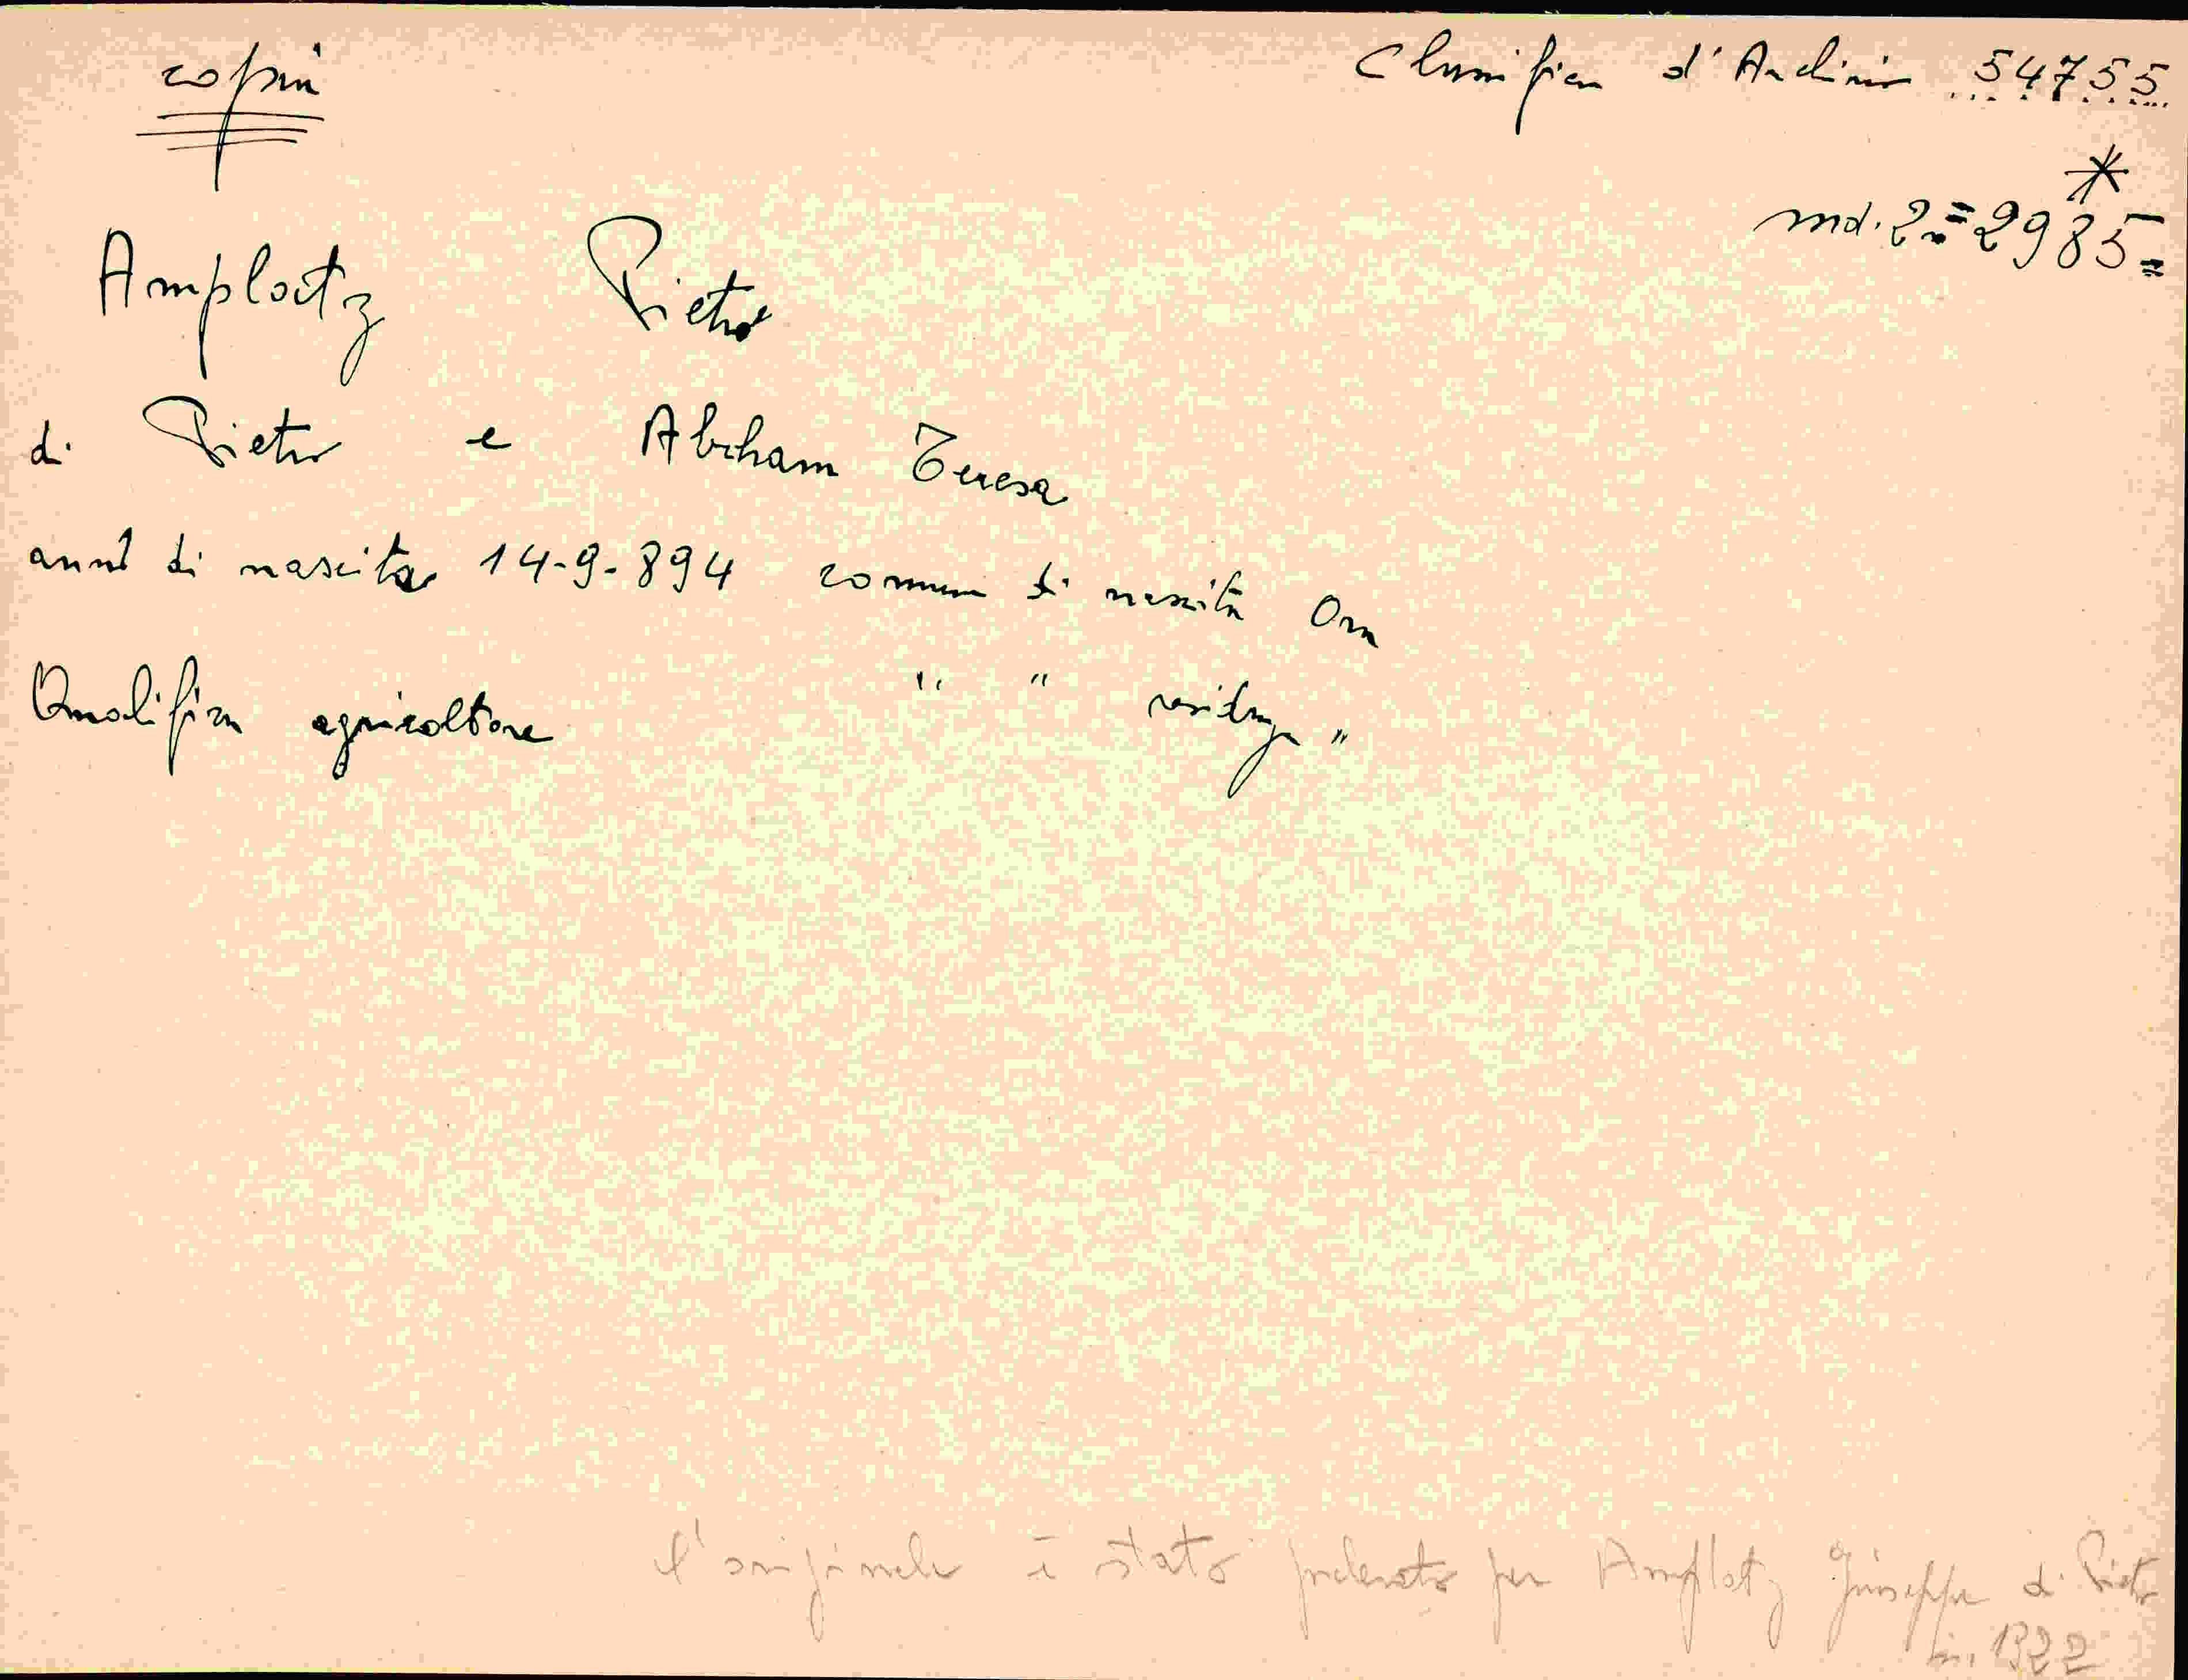 copia
Classifica d'Archivio 54755
*
md. 2 = 2985 =
Amplatz Pietro
di Pietro e Abraham Teresa
anno di nascita 14-9-894 comune di nascita Ora
Qualifica agricoltore " " residenza "
l'originale è stato prelevato per Amplatz Giuseppe di Pietro
1922